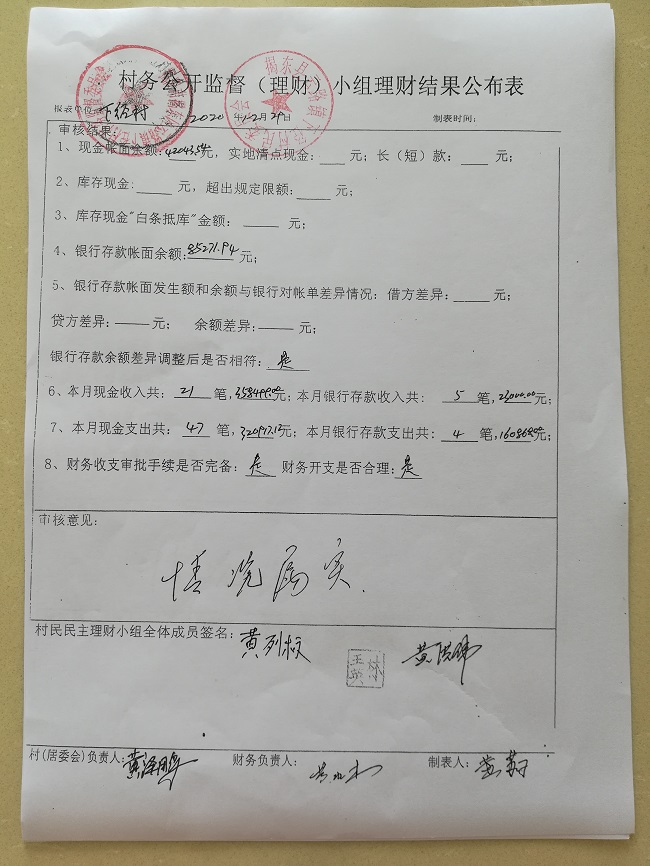 村务公开监督（理财）小组理财结果公布表
报表单位： 村 2020年12月29日 制表时间：
审核结果：
1、现金帐面余额：42043.54元，实地清点现金：___元；长（短）款：___元；
2、库存现金：___元，超出规定限额：___元；
3、库存现金"白条抵库"金额：___元；
4、银行存款帐面余额：85271.94元；
5、银行存款帐面发生额和余额与银行对帐单差异情况：借方差异：___元；
贷方差异：——元； 余额差异：——元；
银行存款余额差异调整后是否相符：是
6、本月现金收入共：21笔，元；本月银行存款收入共：5笔，23000.00元；
7、本月现金支出共：47笔，元；本月银行存款支出共：4笔，元；
8、财务收支审批手续是否完备：是 财务开支是否合理：是
审核意见：
情况属实.
村民民主理财小组全体成员签名：黄列 黄
村(居委会)负责人：黄 财务负责人： 制表人：